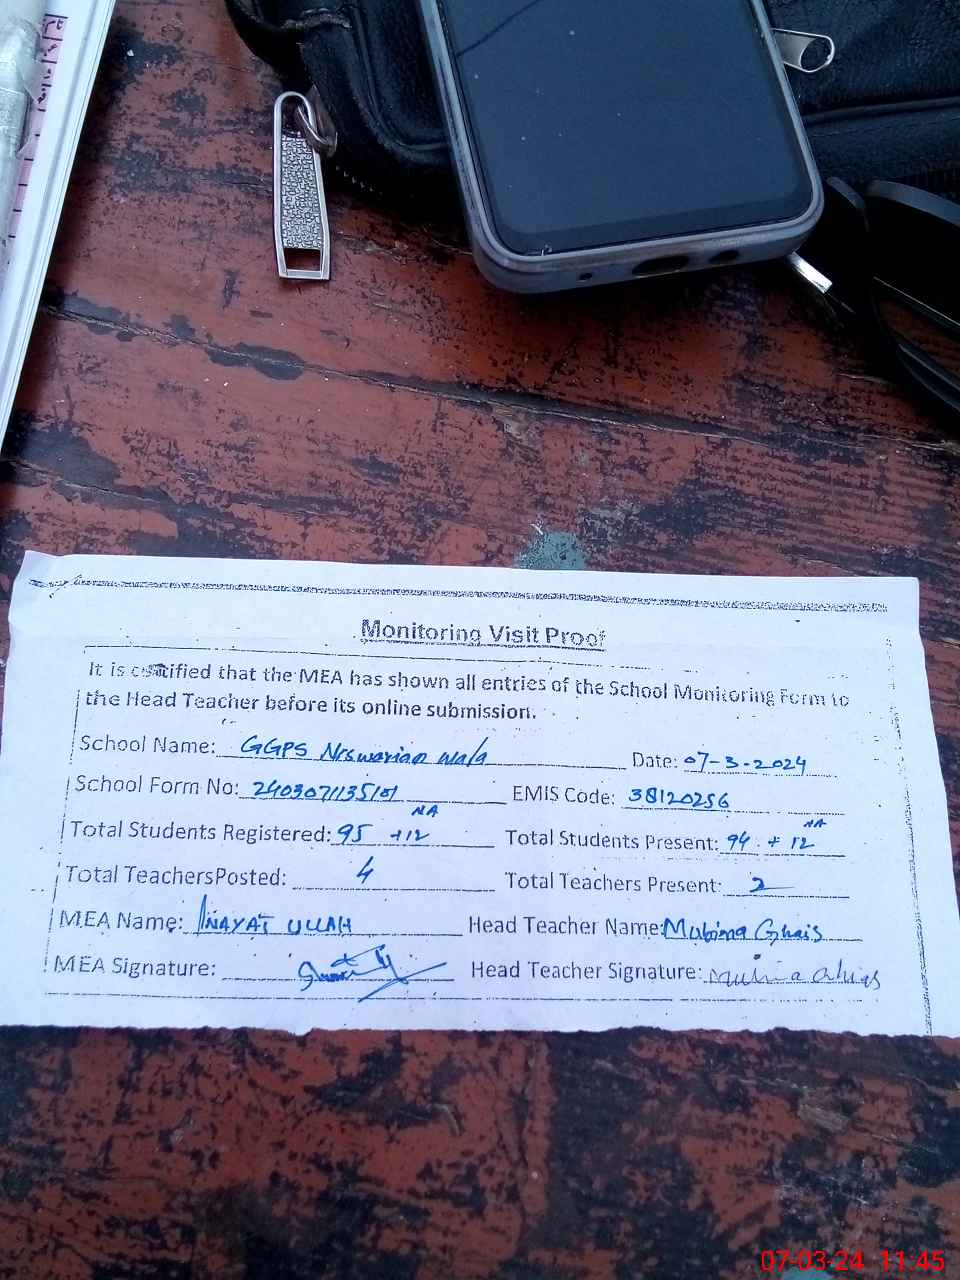 Monitoring Visit Proof
It is certified that the MEA has shown all entries of the School Monitoring Form to
the Head Teacher before its online submission.
School Name: GGPS Nrswarian Wala Date: 07-3-2024
School Form No: EMIS Code: 38120256
NA NA
Total Students Registered: 95 +12 Total Students Present: 94 + 12
Total TeachersPosted: 4 Total Teachers Present: 2
MEA Name: INAYAT ULLAH Head Teacher Name: Mubina Ghais
MEA Signature: Head Teacher Signature:
07-03-24 11:45